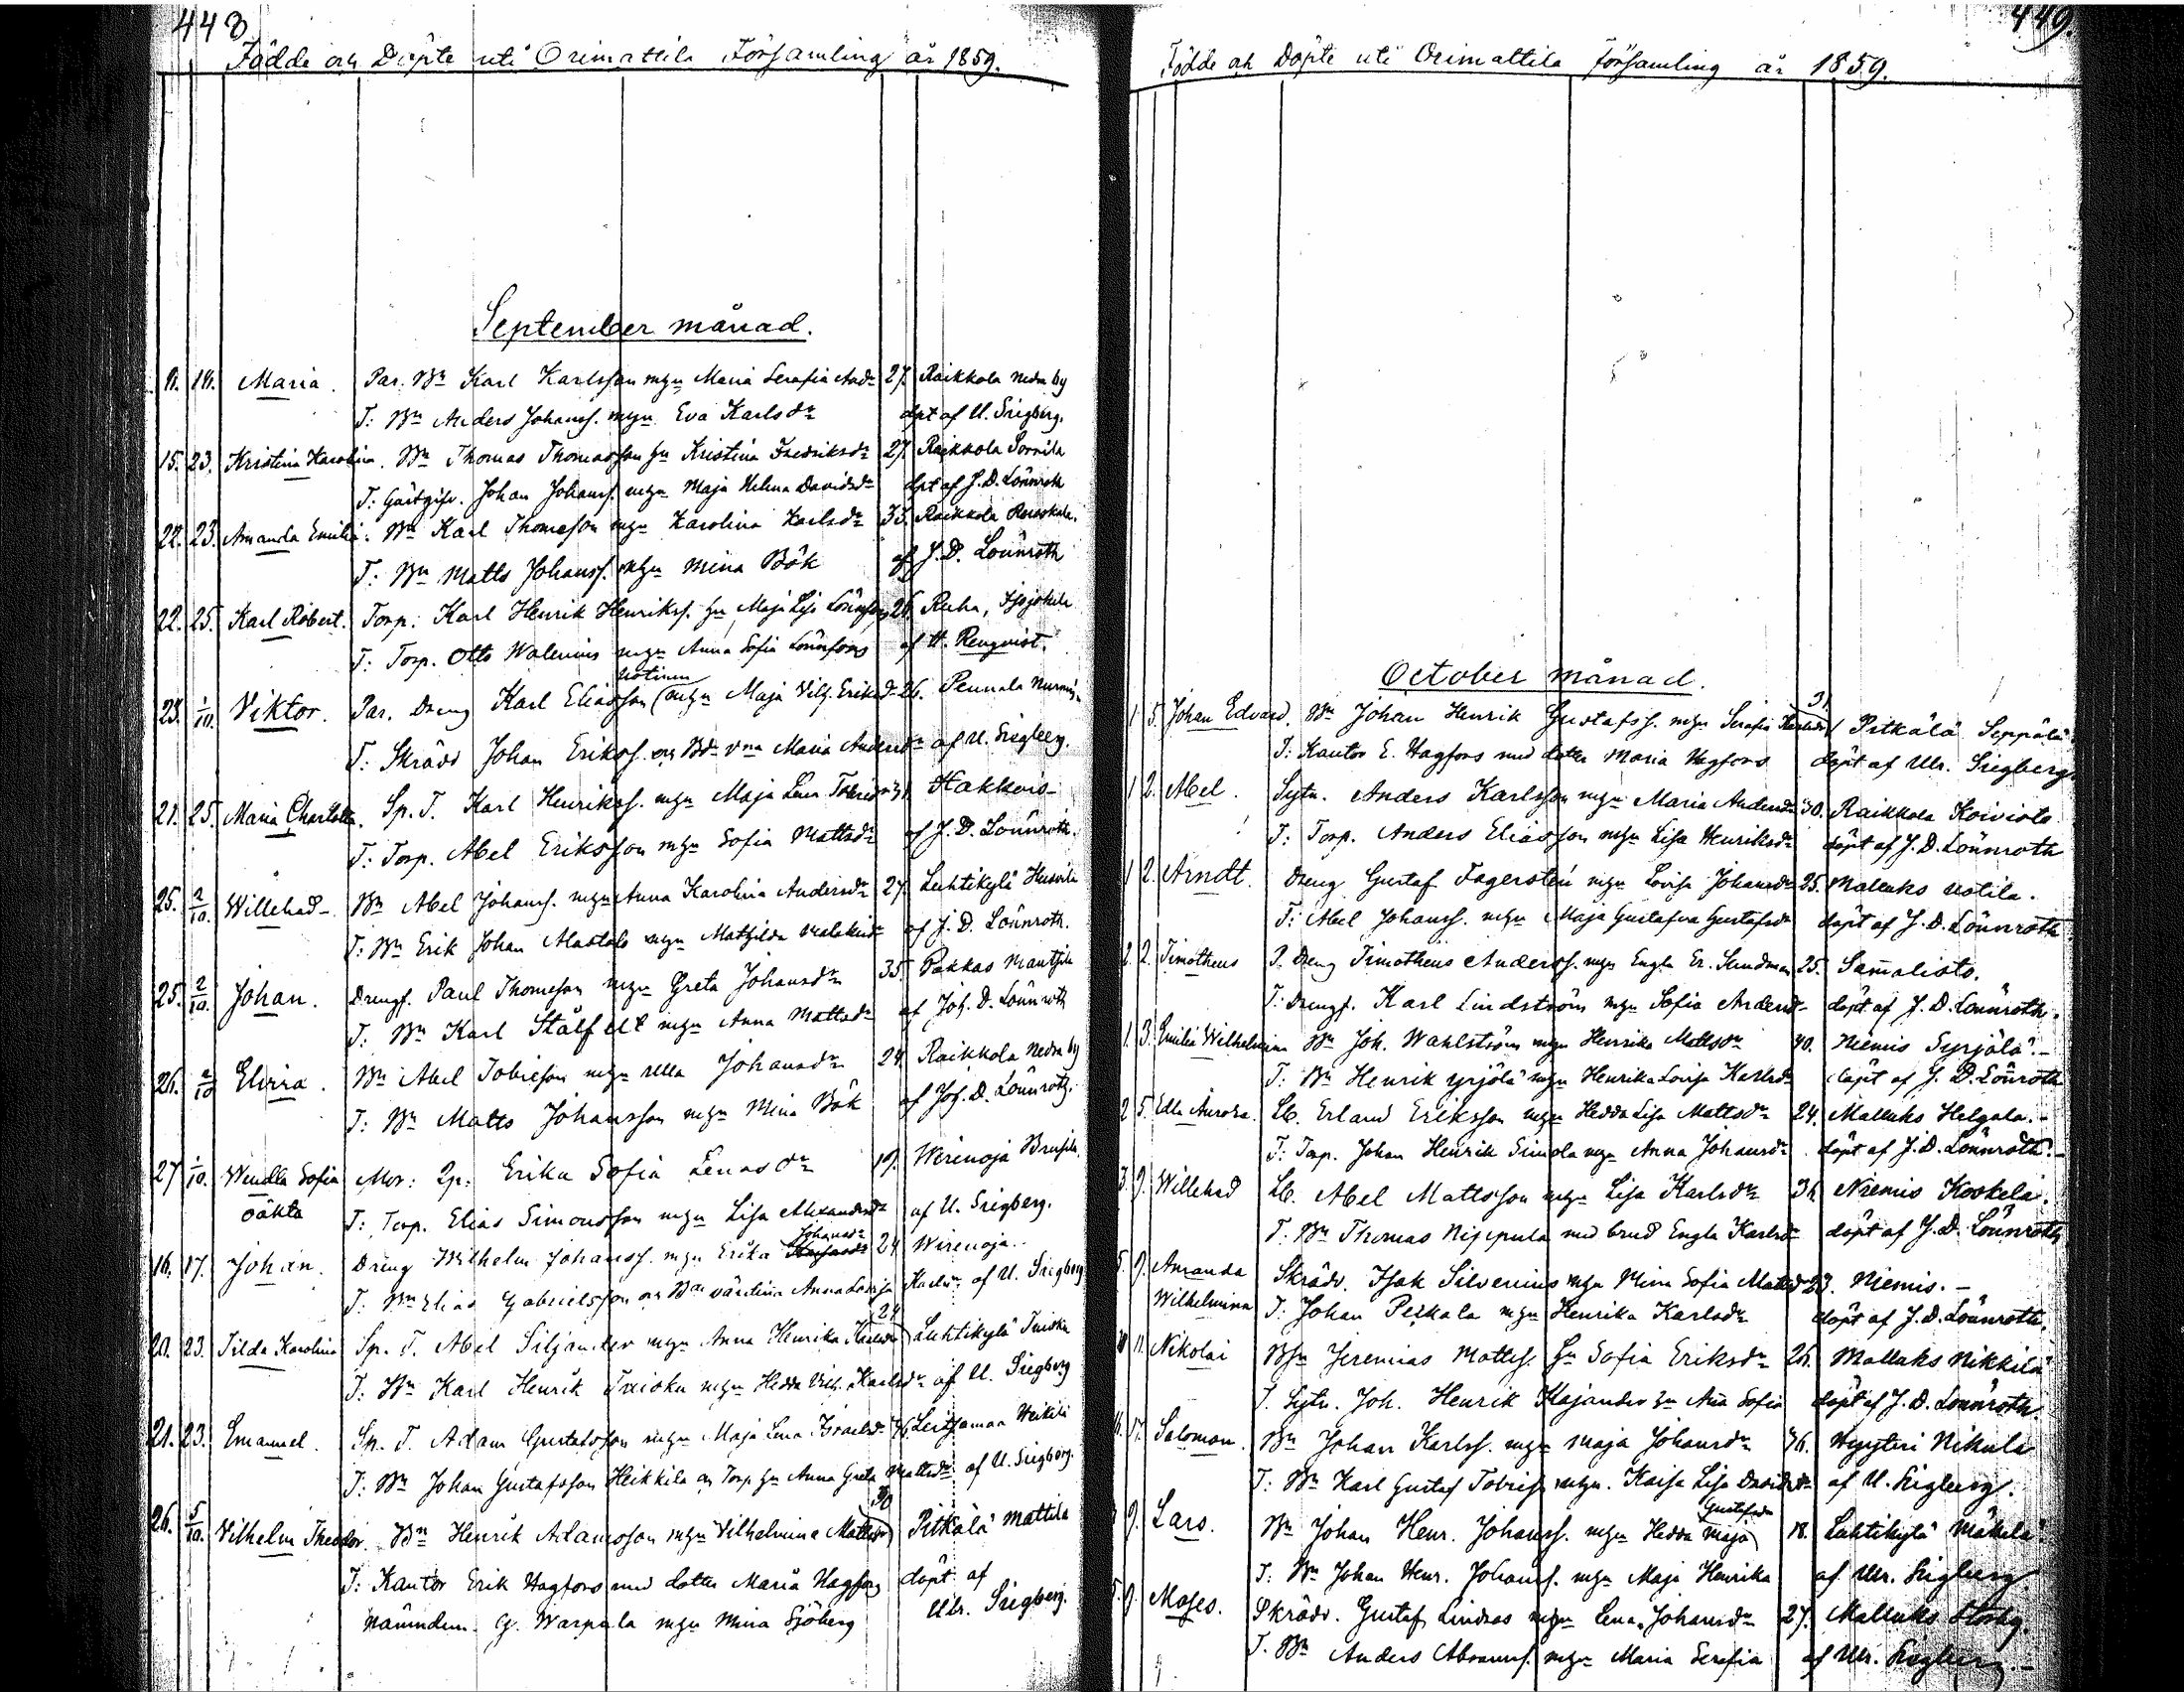 443
Födde och Döpte uti Orimattila Församling år 1859.
September månad.
11. 18. Maria. Par. Bn Karl Karlsson mhu Maria Serafia And 27. Raikkola nedra by
T: Bn Anders Johanss. mhu Eva Karlsdr dpt af U. Siegberg.
15. 23. Kristina Karolina. Bn Thomas Thomasson hu Kristina Fredriksdr 27. Raikkola Sorrila
T: Gästgifv. Johan Johanss. mhu Maja Helena Davidsdr dpt af J. D. Lönnroth
22. 23. Amanda Emilia. Bn Karl Thomesson mhu Karolina Karlsdr 33. Raikkola
T: Bn Matts Johanss. mhu Mina Bök af J. D. Lönnroth
22. 25. Karl Robert. Torp: Karl Henrik Henrikss. hu Maja Lisa Lönnfors 26. Ruha,
T: Torp. Otto Walenius mhu Anna Sofia Lönnfors af H. Renqvist.
23. 1/10. Viktor. Par. Dreng Karl Eliasson mhu Maja Vilh. Eriksd 26. Pennala
T: Skrädd Johan Erikss. och Bdr Maria Andersdr af U. Siegberg.
21. 25. Maria Charlotta. Sp. T. Karl Henrikss. mhu Maja Lena 31. Hakkois
T: Torp. Abel Eriksson mhu Sofia Mattsdr af J. D. Lönnroth.
25. 2/10. Willehad Bn Abel Johanss. mhu Anna Karolina Andersdr 27. Luhtikylä
T: Bn Erik Johan mhu Mathilda af J. D. Lönnroth.
25. 2/10. Johan. Drengs. Paul Thomesson mhu Greta Johansdr 35. Pakkas Mantsila
T: Bn Karl Stålfelt mhu Anna Mattsdr af Joh. D. Lönnroth
26. 2/10 Elvira. Bn Abel Tobiesson mhu Ulla Johansdr 24. Raikkola Nedra by
T: Bn Matts Johansson mhu Mina Bök af Joh. D. Lönnroth.
27 1/10. Wendla Sofia Mor: Erika Sofia Lenasdr 19. Wirenoja
oäkta T: Torp. Elias Simonsson mhu Lisa Alexandersdr af U. Siegberg.
Johansdr
16. 17. Johan. Dreng Wilhelm Johanss. mhu Erika 24 Wirenoja.
T: Bn Elias Gabrielsson och Bdr Anna Lovisa af U. Siegberg
24
20. 23. Tilda Karolina Sp. T. Abel Siljander mhu Anna Henrika Karlsdr Luhtikylä
T: Bn Karl Henrik mhu Hedda Vilh. Karlsdr af U. Siegberg
21. 23. Emanuel. Sp. T. Adam Gustafsson mhu Maja Lena Israelsd Leitsamaa Heikkilä
T: Bn Johan Gustafsson Heikkilä och Torp hu Anna Greta Mattsdr af U. Siegberg.
30
26. 5/10. Vilhelm Theodor. Bn Henrik Adamsson mhu Vilhelmina Mattsdr Pitkälä Mattila
T: Kantor Erik Hagfors med dotter Maria Hagfors döpt af
Nämndem. G. Warpula mhu Mina Sjöberg Ulr. Siegberg.
449.
Födde och Döpte uti Orimattila Församling år 1859.
October månad.
31.
1 5. Johan Edvard. Bn Johan Henrik Gustafss. mhu Serafia Karlsdr Pitkälä Seppälä
T: Kantor E. Hagfors med dotter Maria Hagfors döpt af Ulr. Siegberg.
1 2. Abel. Sytn. Anders Karlsson mhu Maria Andersdr 30. Raikkola Koivisto
T: Torp. Anders Eliasson mhu Lisa Henriksdr döpt af J. D. Lönnroth
1 2. Arndt. Dreng Gustaf Fagersten mhu Lovisa Johansdr 25. Mallusks Uotila.
T: Abel Johanss. mhu Maja Gustafva Gustafsdr döpt af J. D. Lönnroth
2. 2. Timotheus P. Dreng Timotheus Anderss. mhu Engla Er. Sundman 25. Sam̄alisto.
T: Drengs. Karl Lindström mhu Sofia Andersd döpt af J. D. Lönnroth.
1. 3. Emilia Wilhelmina Bn Joh. Wahlström mhu Henrika Mattsdr 40. Niemis Syrjälä.
T: Bn Henrik Yrjölä mhu Henrika Lovisa Karlsdr döpt af J. D. Lönroth
2 5. Edla Aurora. Lb. Erland Eriksson mhu Hedda Lisa Mattsdr 24. Mallusks Helgala.
T: Torp. Johan Henrik Simola mhu Anna Johansdr döpt af J. D. Lönnroth.
3. 9. Willehad Lb. Abel Mattsson mhu Lisa Karlsdr 31. Niemis Koskela.
T: Bn Thomas Nippula med brud Engla Karlsdr döpt af J. D. Lönnroth
5. 9. Amanda Skrädd. Isak Silvenius mhu Mina Sofia Mattsd 23. Niemis.
Wilhelmina T: Johan Peikala mhu Henrika Karlsdr döpt af J. D. Lönnroth.
10 11. Nikolai Bsn Jeremias Mattss. hu Sofia Eriksdr 26. Mallusks Nikkilä
T. Sytn. Joh. Henrik Kajander hu Ana Sofia döpt af J. D. Lönnroth.
11. 17. Salomon. Bn Johan Karlss. mhu Maja Johansdr 36. Nikula
T: Bn Karl Gustaf Tobiess. mhu. Kaisa Lisa Davidsdr af U. Siegberg.
Gustafsdr
9. Lars. Bn Johan Henr. Johanss. mhu Hedda Maja 18. Luhtikylä Mäkelä
T: Bn Johan Henr. Johanss. mhu Maja Henrika af Ulr. Siegberg
5. 9. Moses. Skrädd. Gustaf Lindroos mhu Lena Johansdr 27. Mallusks
T. Bn Anders Abramss. mhu Maria Serafia af Ulr. Siegberg.